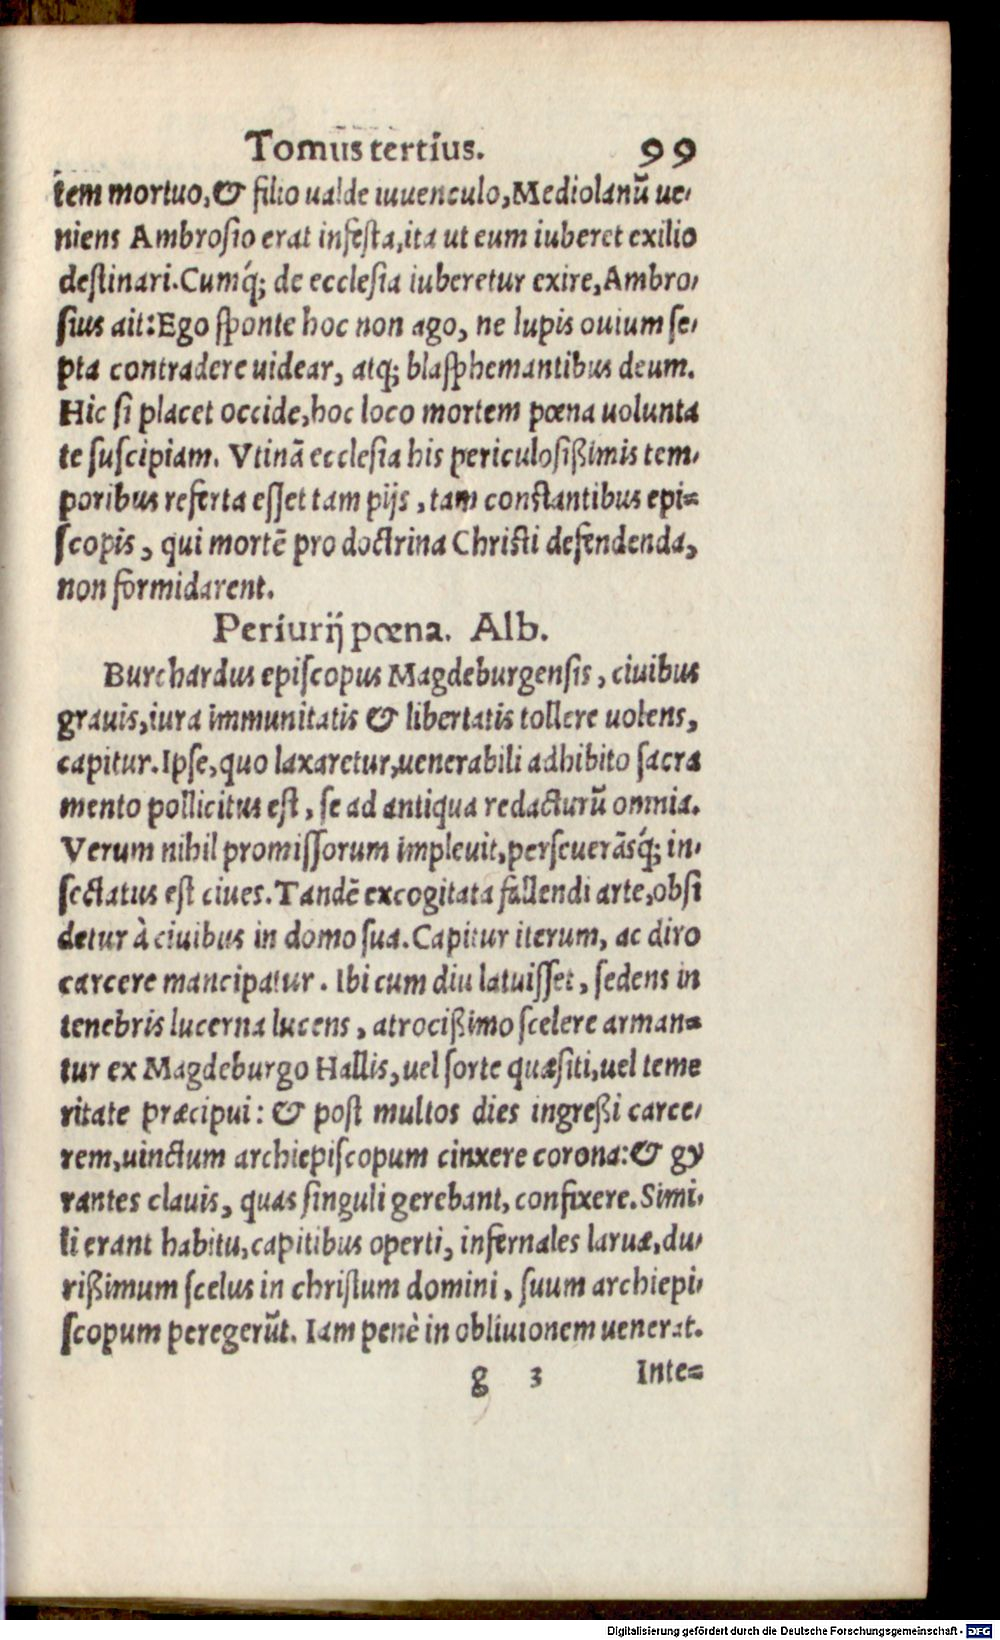 Tomus tertius. 99
tem mortuo, & filio ualde iuuenculo, Mediolanū ue-
niens Ambrosio erat infesta, ita ut eum iuberet exilio
destinari. Cumq́; de ecclesia iuberetur exire, Ambro-
sius ait: Ego sponte hoc non ago, ne lupis ouium se-
pta contradere uidear, atq; blasphemantibus deum.
Hic si placet occide, hoc loco mortem pœna uolunta
te suscipiam. Vtinā ecclesia his periculosißimis tem-
poribus referta esset tam pijs, tam constantibus epi=
scopis, qui mortē pro doctrina Christi defendenda,
non formidarent.
Periurij pœna. Alb.
Burchardus episcopus Magdeburgensis, ciuibus
grauis, iura immunitatis & libertatis tollere uolens,
capitur. Ipse, quo laxaretur, uenerabili adhibito sacra
mento pollicitus est, se ad antiqua redacturū omnia.
Verum nihil promissorum impleuit, perseuerāsq́; in-
sectatus est ciues. Tandē excogitata fallendi arte, obsi
detur à ciuibus in domo sua. Capitur iterum, ac diro
carcere mancipatur. Ibi cum diu latuisset, sedens in
tenebris lucerna lucens, atrocißimo scelere arman=
tur ex Magdeburgo Hallis, uel sorte quæsiti, uel teme
ritate præcipui: & post multos dies ingreßi carce-
rem, uinctum archiepiscopum cinxere corona: & gy
rantes clauis, quas singuli gerebant, confixere. Simi-
li erant habitu, capitibus operti, infernales laruæ, du-
rißimum scelus in christum domini, suum archiepi-
scopum peregerūt. Iam penè in obliuionem uenerat.
g 3 Inte=
Digitalisierung gefördert durch die Deutsche Forschungsgemeinschaft - DFG